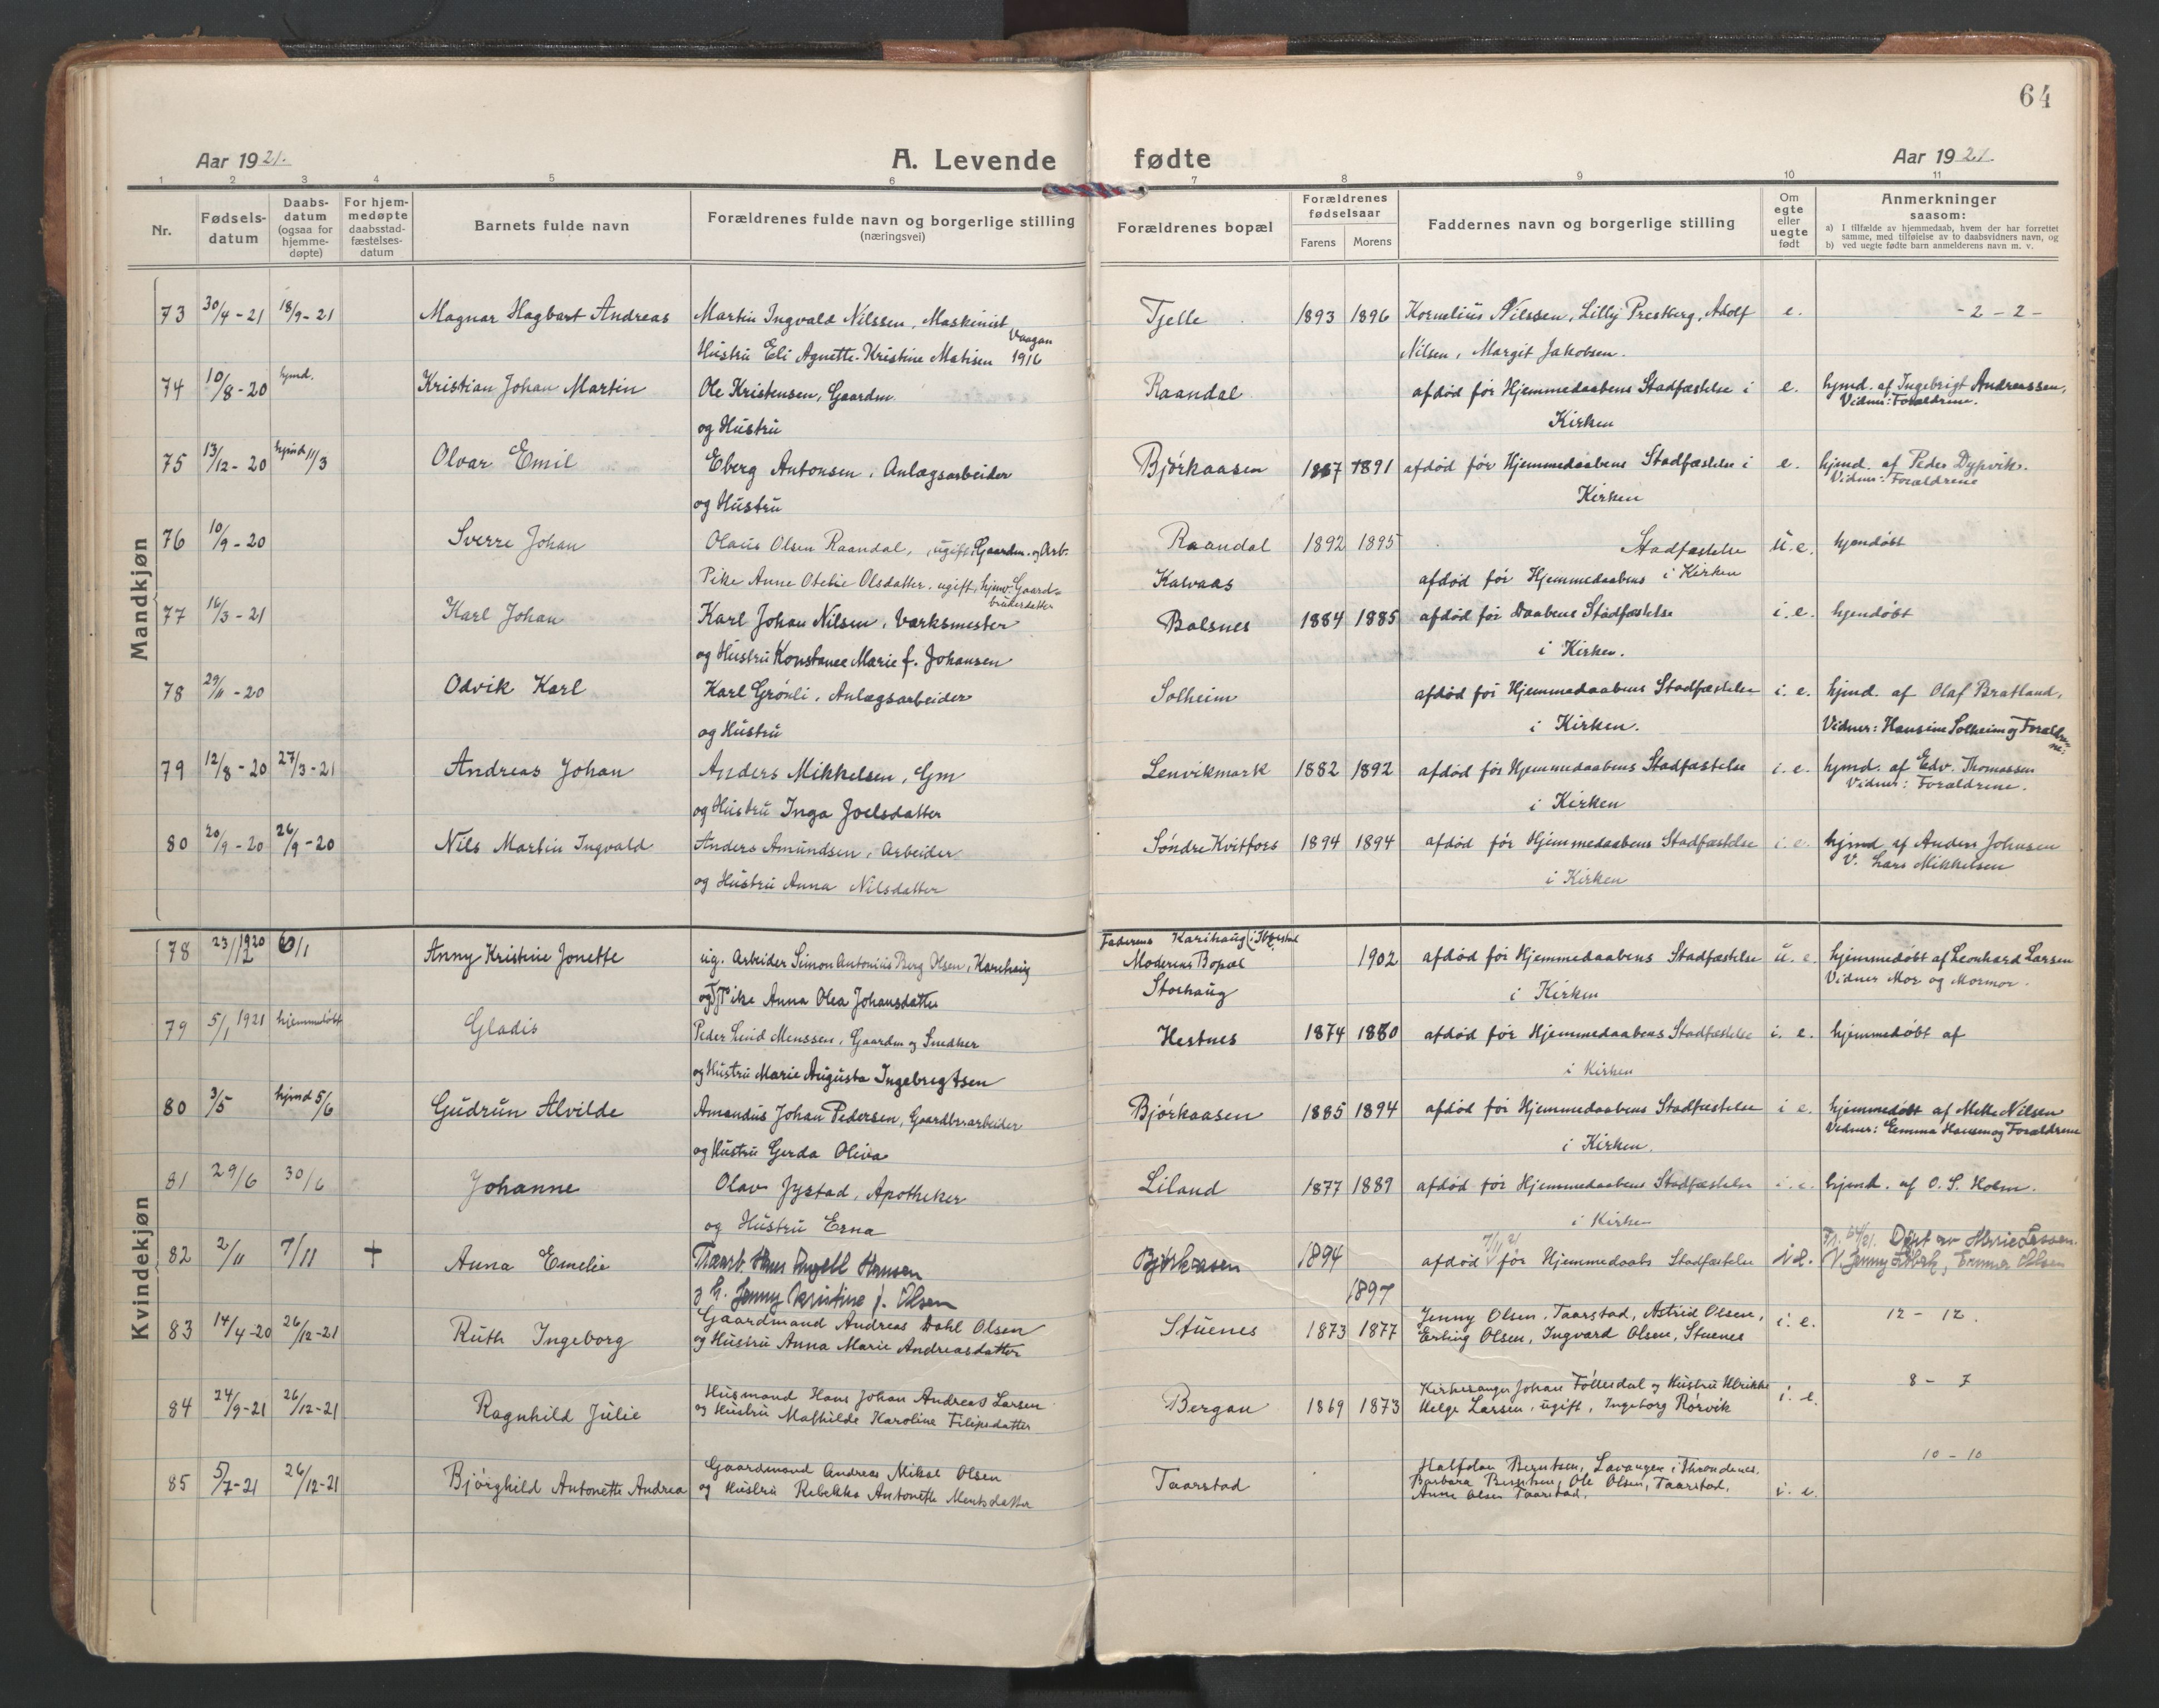 64
Aar 1921.
A. Levende fødte
Aar 1921.
1 2 3 4 5 6 7 8 9 10 11
Nr.
Fødsels-
datum
Daabs-
datum
(ogsaa for
hjemme-
døpte)
For hjem-
medøpte
daabsstad-
fæstelses-
datum
Barnets fulde navn
Forældrenes fulde navn og borgerlige stilling
(næringsvei)
Forældrenes bopæl
Forældrenes
fødselsaar
Farens Morens
Faddernes navn og borgerlige stilling
Om
egte
eller
uegte
født
Anmerkninger
saasom:
a) I tilfælde av hjemmedaab, hvem der har forrettet
samme, med tilføielse av to daabsvidners navn, og
b) ved uegte fødte barn anmelderens navn m. v.
Mandkjøn
73 30/4-21 18/9-21 Magnar Hagbart Andreas Martin Ingvald Nilssen, Maskinist Tjelle 1893 1896 Kornelius Nilssen, Lilly Presberg, Adolf e. -2-2-
Vaagan
Hustru Eli Agnette Kristine Matisen 1916 Nilsen, Margit Jakobsen.
74 10/8-20 hjmd. Kristian Johan Martin Ole Kristensen, Gaardm. Raandal afdød før Hjemmedaabens Stadfæstelse i e. hjmd. af Ingebrigt Andreassen,
og Hustru Kirken Vidner: Forældrene.
75 13/12-20 hjmd 11/3 Olvar Emil Eberg Antonsen, Anlægsarbeider Bjørkaasen 1887 1891 afdød før Hjemmedaabens Stadfæstelse i e. hjmd. af Peder Dypvik.
og Hustru Kirken Vidner: Forældrene
76 10/9-20 Sverre Johan Olaus Olsen Raandal, ugift, Gaardm. og Arb. Raandal 1892 1895 Stadfæstelse u.e. hjemdøbt
Pike Anne Otelie Olsdatter, ugift, hjmv. Gaard- Kalvaas afdød før Hjemmedaabens i Kirken
brukerdatter
77 16/3-21 Karl Johan Karl Johan Nilsen, Værksmester Balsnes 1884 1885 afdød før Daabens Stadfæstelse i.e. hjemdøbt
og Hustru Konstanse Marie f. Johansen i Kirken.
78 29/11-20 Odvik Karl Karl Grønli, Anlægsarbeider Solheim afdød før Hjemmedaabens Stadfæstelse i.e. hjmd. af Olaf Bratland,
og Hustru i Kirken. Vidner: Hansine Solheim og Forældrene.
79 12/8-20 27/3-21 Andreas Johan Anders Mikkelsen, Gm Lenvikmark 1882 1892 afdød før Hjemmedaabens Stadfæstelse i.e. hjmd. af Edv. Thomassen
og Hustru Inga Joelsdatter i Kirken Vidner: Forældrene.
80 20/9-20 26/9-20 Nils Martin Ingvald Anders Amundsen, Arbeider Søndre Kvitfors 1894 1894 afdød før Hjemmedaabens Stadfæstelse i.e. hjmd af Anders Johnsen
og Hustru Anna Nilsdatter i Kirken V. Lars Mikkelsen
Kvindekjøn
Faderens Karihaug
78 23/12 1920 Anny Kristine Jonette ug. Arbeider Simon Antonius Berg Olsen, Karihaug Moderens Bopæl 1902 afdød før Hjemmedaabens Stadfæstelse u.e. hjemmedøbt af Leonhard Larsen
og Pike Anna Olea Johansdatter Storhaug i Kirken Vidner Mor og Mormor.
79 5/1 1921 hjemmedøbt Gladis Peder Lund Menssen, Gaardm og Snedker Hestnes 1874 1880 afdød før Hjemmedaabens Stadfæstelse i.e. hjemmedøbt af
og Hustru Marie Augusta Ingebregtsen i Kirken
80 3/5 hjmd 5/6 Gudrun Alvilde Amandus Johan Pedersen, Gaardbrarbeider Bjørkaasen 1885 1894 afdød før Hjemmedaabens Stadfæstelse i e. hjemmedøbt af Mette Nilsen
og Hustru Gerda Oliva i Kirken. Vidner: Emma Hansen og Forældrene
81 29/6 30/6 Johanne Olav Jystad, Apotheker Liland 1877 1889 afdød før Hjemmedaabens Stadfæstelse i.e. hjmd. af O. S. Holm.
og Hustru Erna i Kirken
82 2/11 7/11 + Anna Emelie Træarb. Hans Ingvell Hansen Bjørkaasen 1894 afdød 7/11 21 før Hjemmedaabs Stadfæstelse i e. Døpt av Marie Larsen.
og H. Jenny Kristine f. Olsen 1897 V. Jenny
83 14/4-20 26/12-21 Ruth Ingeborg Gaardmand Andreas Dahl Olsen Stuenes 1873 1877 Jenny Olsen, Taarstad, Astrid Olsen, i. e. 12 - 12.
og Hustru Anna Marie Andreasdatter Erling Olsen, Ingvard Olsen, Stuenes
84 24/9-21 26/12-21 Ragnhild Julie Husmand Hans Johan Andreas Larsen Bergan 1869 1873 Kirkesanger Johan Føllesdal og Hustru Ulrikke i. e. 8 - 7
og Hustru Mathilde Karoline Filipsdatter Helge Larsen, ugift, Ingeborg Rørvik
85 5/7-21 26/12-21 Bjørghild Antonette Andrea Gaardmand Andreas Mikal Olsen Taarstad Halfdan Berntsen, Lavangen i Throndenes. i. e. 10 - 10
og Hustru Rebekka Antonette Mentsdatter Barbara Berntsen, Ole Olsen, Taarstad,
Anne Olsen Taarstad.